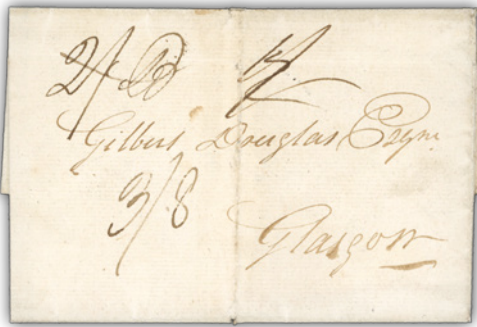 2/
Gilbert Douglas Esqr.
3/8
Glasgow